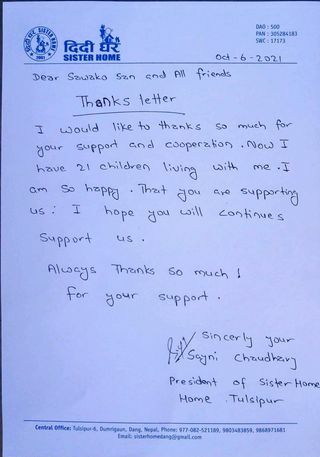 DAO : 500
PAN : 305284183
SWC : 17173
दिदी घर
SISTER HOME
2001
Oct-6-2021
Dear Sawako San and All friends
Thanks letter
I would like to thanks so much for
your support and cooperation. Now I
have 21 children living with me. I
am so happy. That you are supporting
us. I hope you will continues
support us.
Always Thanks so much!
for your support.
Sincerly your
Sajni Chaudhary
President of Sister Home
Home Tulsipur
Central Office: Tulsipur-6, Dumrigaun, Dang, Nepal, Phone: 977-082-521189, 9803483859, 9868971681
Email: sisterhomedang@gmail.com